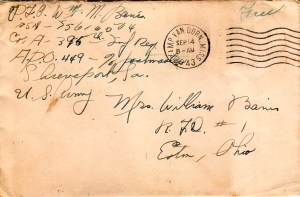 Wm. M. Bains
Free
Co A - 395th Inf Reg
CAMP VAN DORN, MISS.
SEP 14
8 - AM
1943
A.P.O. 449 - % Postmaster
Shreveport, La.
U.S. Army
Mrs. William Bains
R.F.D. # 1
Eaton, Ohio